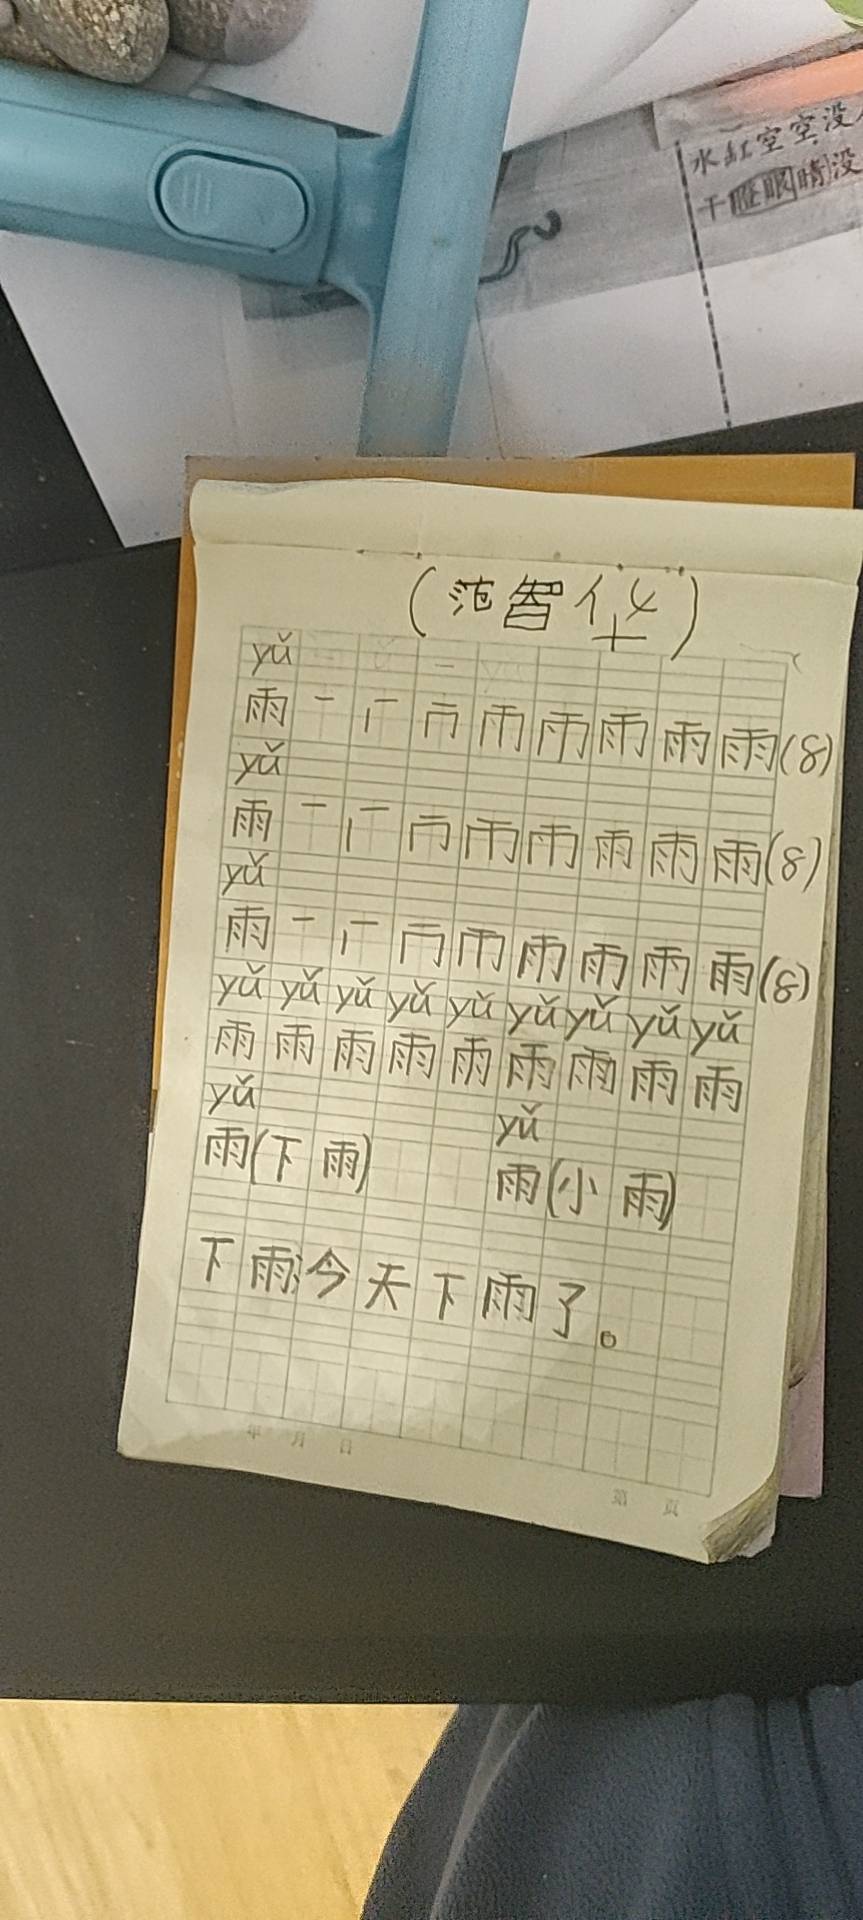 水缸空空没
干瞪眼睛没
(范智华)
yǔ
雨 一 冂 雨 雨 雨 雨 雨(8)
yǔ
雨 一 雨 雨 雨 雨(8)
yǔ
雨 一 雨 雨 雨 雨(8)
yǔ yǔ yǔ yǔ yǔ yǔ yǔ yǔ yǔ
雨 雨 雨 雨 雨 雨 雨 雨 雨
yǔ yǔ
雨(下雨) 雨(小雨)
下雨:今天下雨了。
年 月 日 第 页